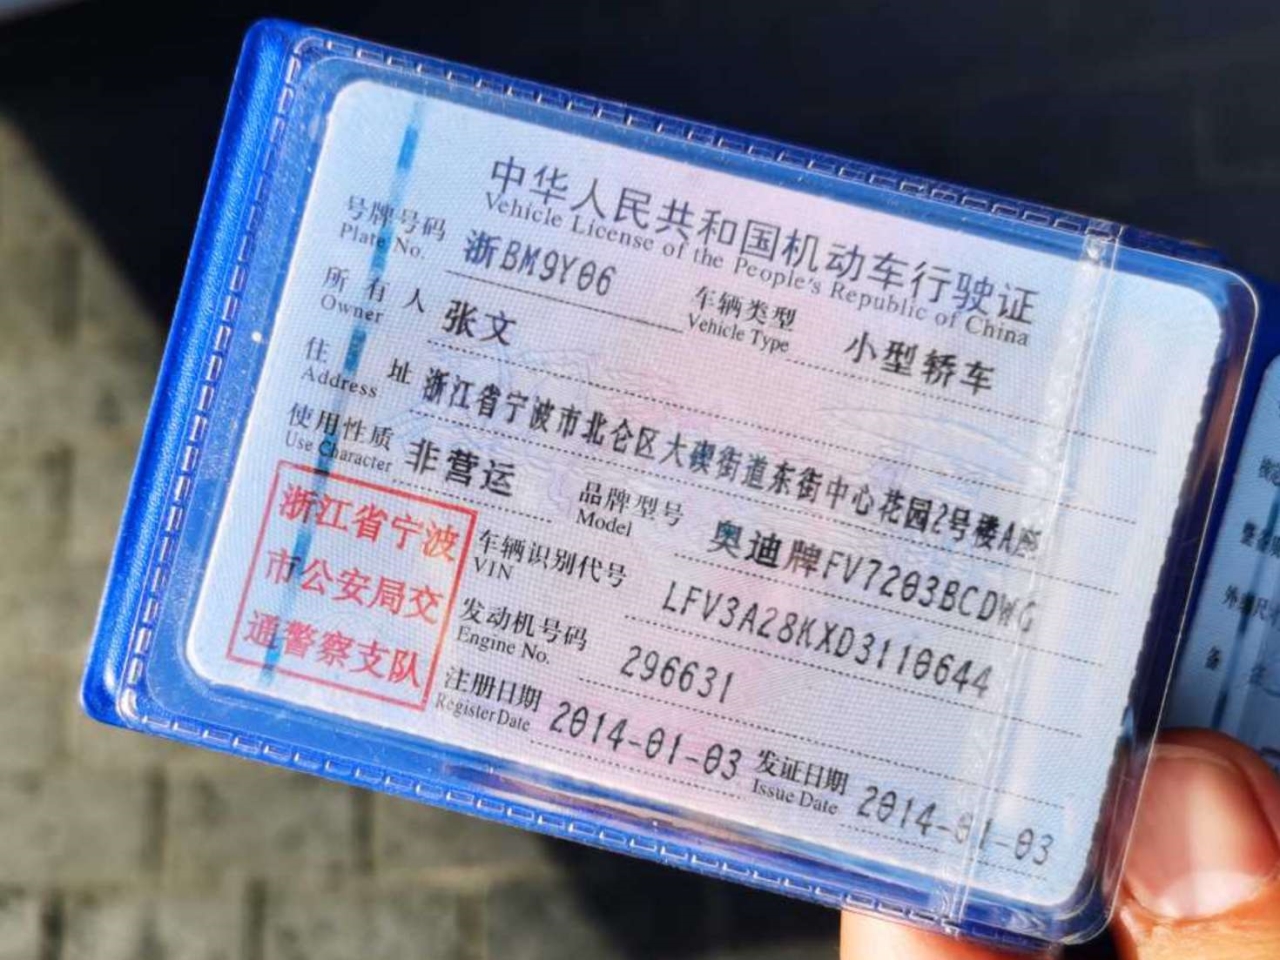 中华人民共和国机动车行驶证
Vehicle License of the People's Republic of China
号牌号码 浙BM9Y06 车辆类型 小型轿车
Plate No. Vehicle Type
所有人 张文
Owner
住址 浙江省宁波市北仑区大碶街道东街中心花园2号楼A座
Address
使用性质 非营运 品牌型号 奥迪牌FV7203BCDWG
Use Character Model
浙江省宁波
市公安局交
通警察支队
车辆识别代号 LFV3A28KXD3110644
VIN
发动机号码 296631
Engine No.
注册日期 2014-01-03 发证日期 2014-01-03
Register Date Issue Date